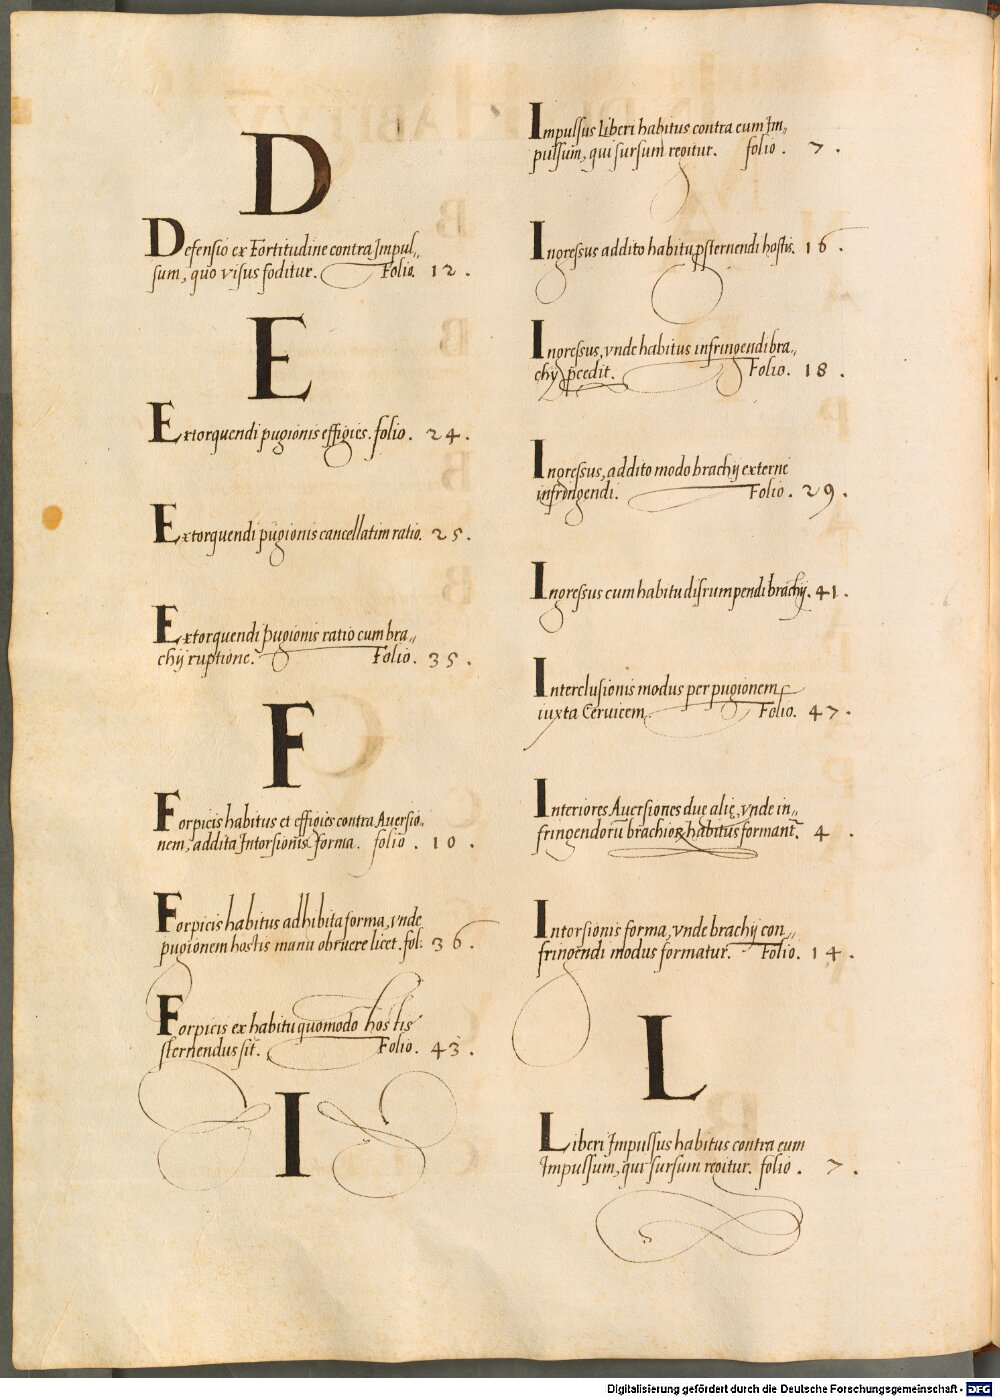 D
Defensio ex Fortitudine contra Impul„
sum, quo visus foditur. Folio. 12.
E
Extorquendi pugionis effigies. folio. 24.
Extorquendi pugionis cancellatim ratio. 25.
Extorquendi pugionis ratio cum bra„
chij ruptione. Folio. 35.
F
Forpicis habitus et effigies contra Auersio„
nem, addita Intorsionis forma. folio. 10.
Forpicis habitus adhibita forma, vnde
pugionem hostis manu obruere licet. fol: 36.
Forpicis ex habitu quomodo hostis
sternendus sit. Folio. 43.
I
Impulsus Liberi habitus contra eum Im„
pulsum, qui sursum regitur. folio. 7.
Ingressus addito habitu ꝓsternendi hostis. 16.
Ingressus, vnde habitus infringendi bra„
chij ꝓcedit. Folio. 18.
Ingressus, addito modo brachij externe
infringendi. Folio. 29.
Ingressus cum habitu disrumpendi brachij. 41.
Interclusionis modus per pugionem
iuxta Ceruicem. Folio. 47.
Interiores Auersiones duę alię, vnde in„
fringendorũ brachioꝝ habitus formant᷑. 4.
Intorsionis forma, vnde brachij con„
fringendi modus formatur. Folio. 14.
L
Liberi Impulsus habitus contra eum
Impulsum, qui sursum regitur. folio. 7.
Digitalisierung gefördert durch die Deutsche Forschungsgemeinschaft - DFG